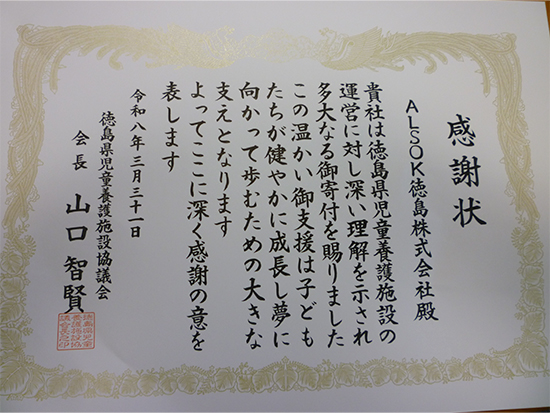 感謝状
ALSOK徳島株式会社殿
貴社は徳島県児童養護施設の
運営に対し深い理解を示され
多大なる御寄付を賜りました
この温かい御支援は子ども
たちが健やかに成長し夢に
向かって歩むための大きな
支えとなります
よってここに深く感謝の意を
表します
令和八年三月三十一日
徳島県児童養護施設協議会
会長 山口智賢